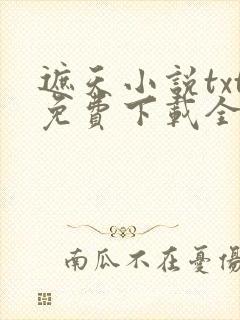 遮天小説txt
免費下載全
南瓜不在憂傷